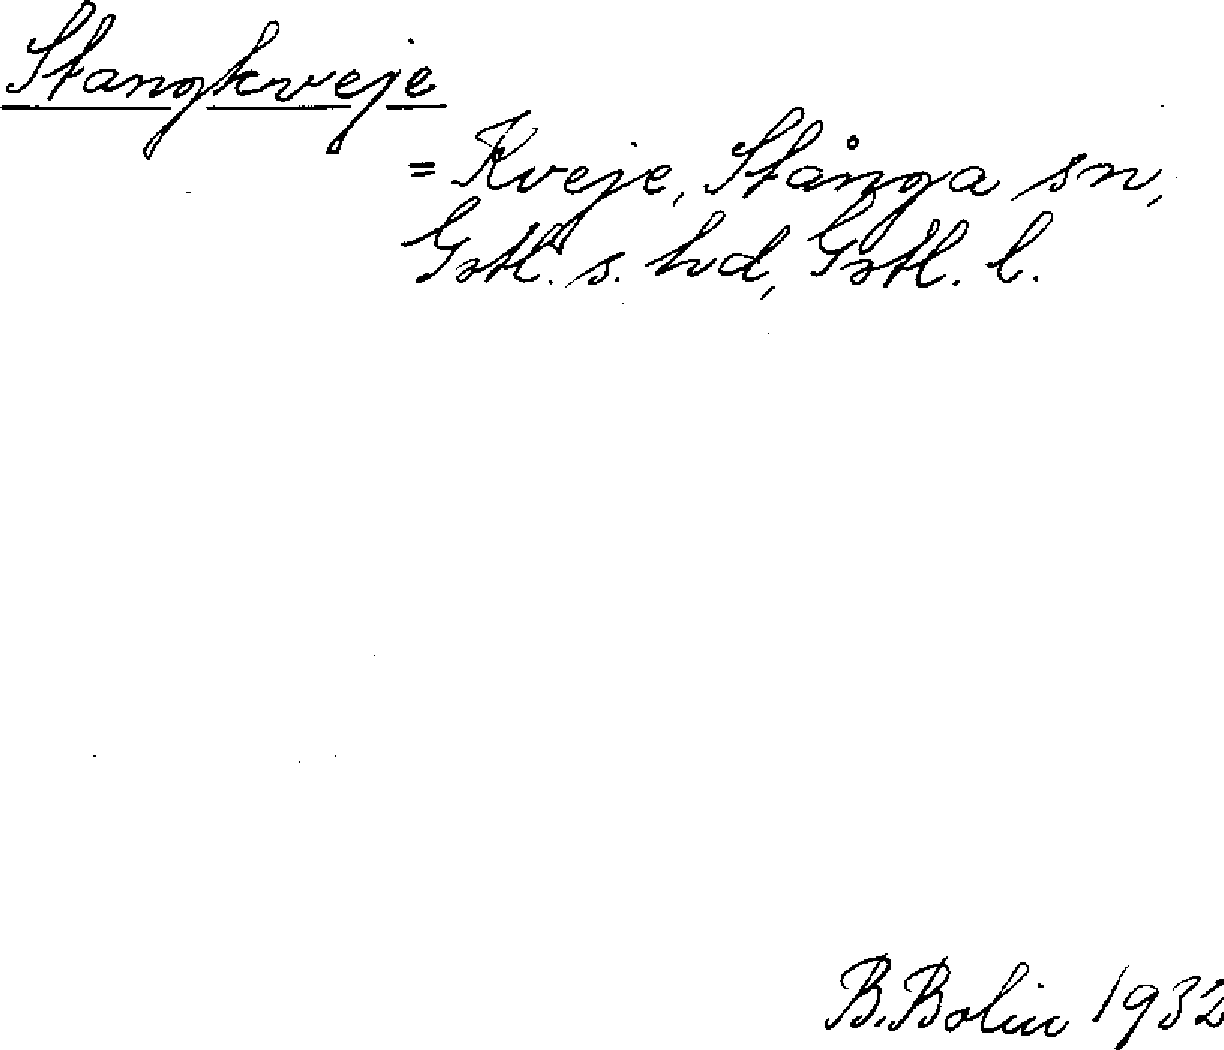 Stangkveje
= Kveje, Stånga sn,
Gotl. s. hd, Gotl. l.
B. Bolin 1932